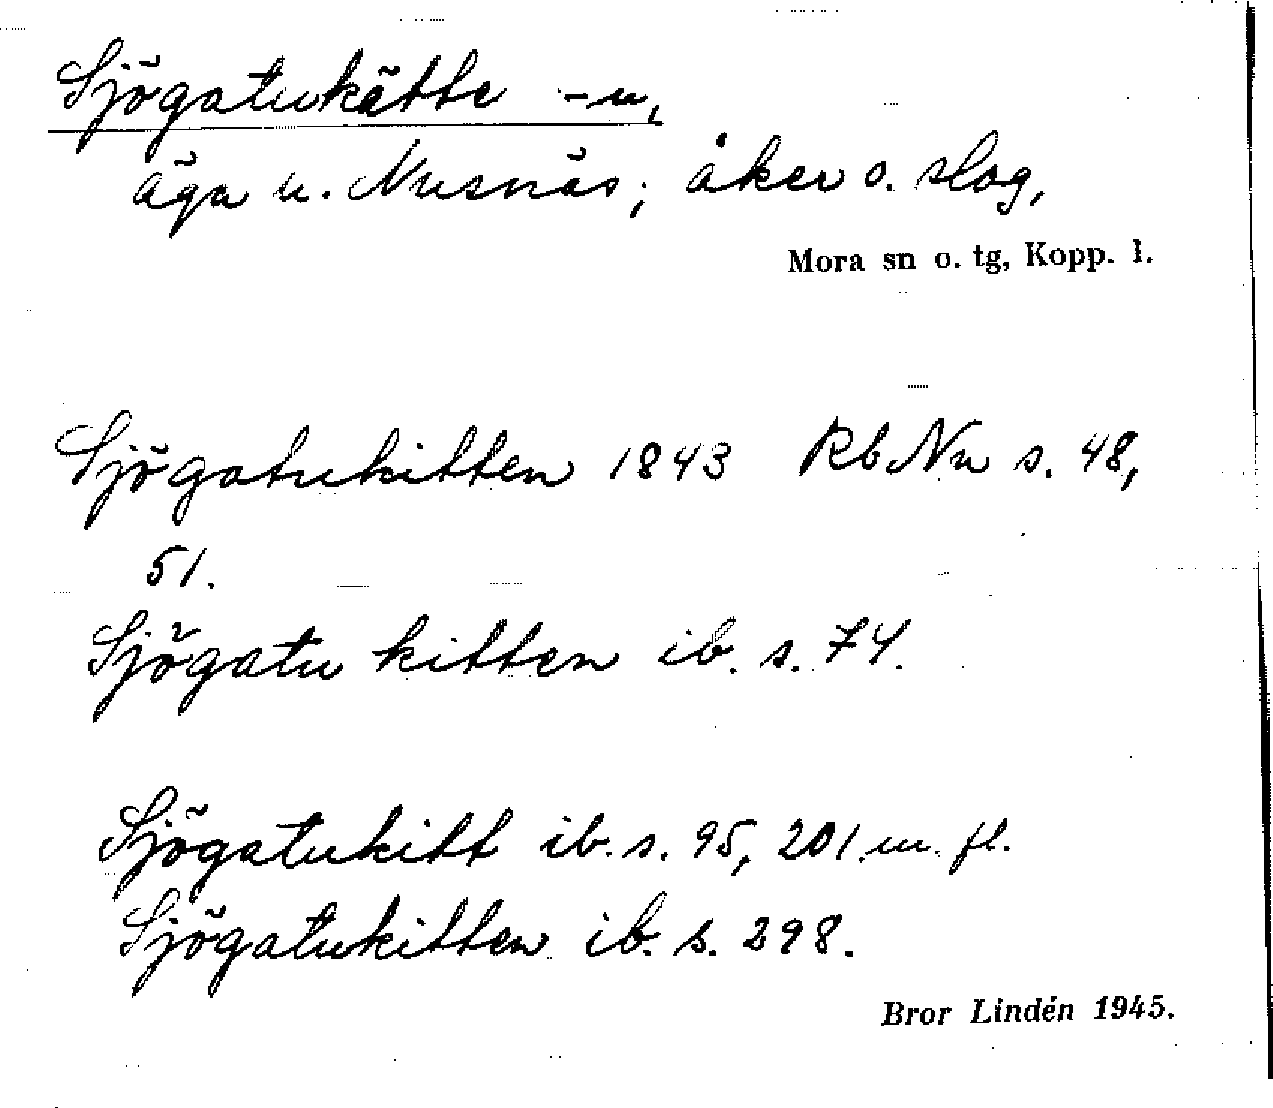 Sjögatukätte -n,
äga u. Nusnäs; åker o. slog,
Mora sn o. tg, Kopp. l.
Sjögatukitten 1843 Rb Nu s. 48,
51.
Sjögatu kitten ib. s. 74.
Sjögatukitt ib. s. 95, 201 m. fl.
Sjögatukitten ib. s. 298.
Bror Lindén 1945.